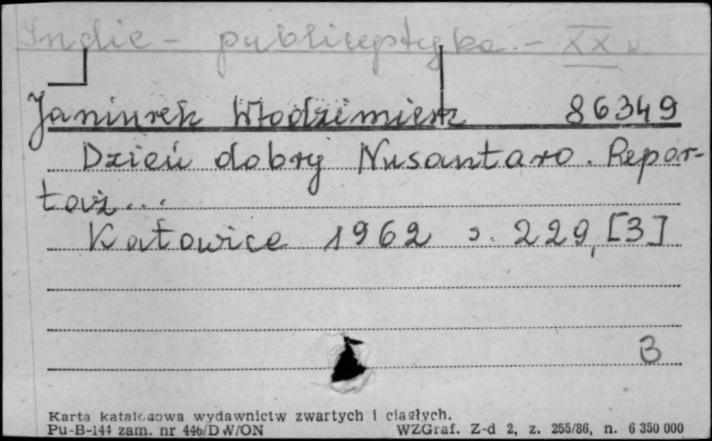 Indie - publicystyka - XX w
Janiurek Włodzimierz 86349
Dzień dobry Nusantaro. Repor-
taż...
Katowice 1962 s. 229, [3]
B
Karta katalogowa wydawnictw zwartych i ciągłych.
Pu-B-144 zam. nr 446/DW/ON WZGraf. Z-d 2, z. 255/86, n. 6 350 000